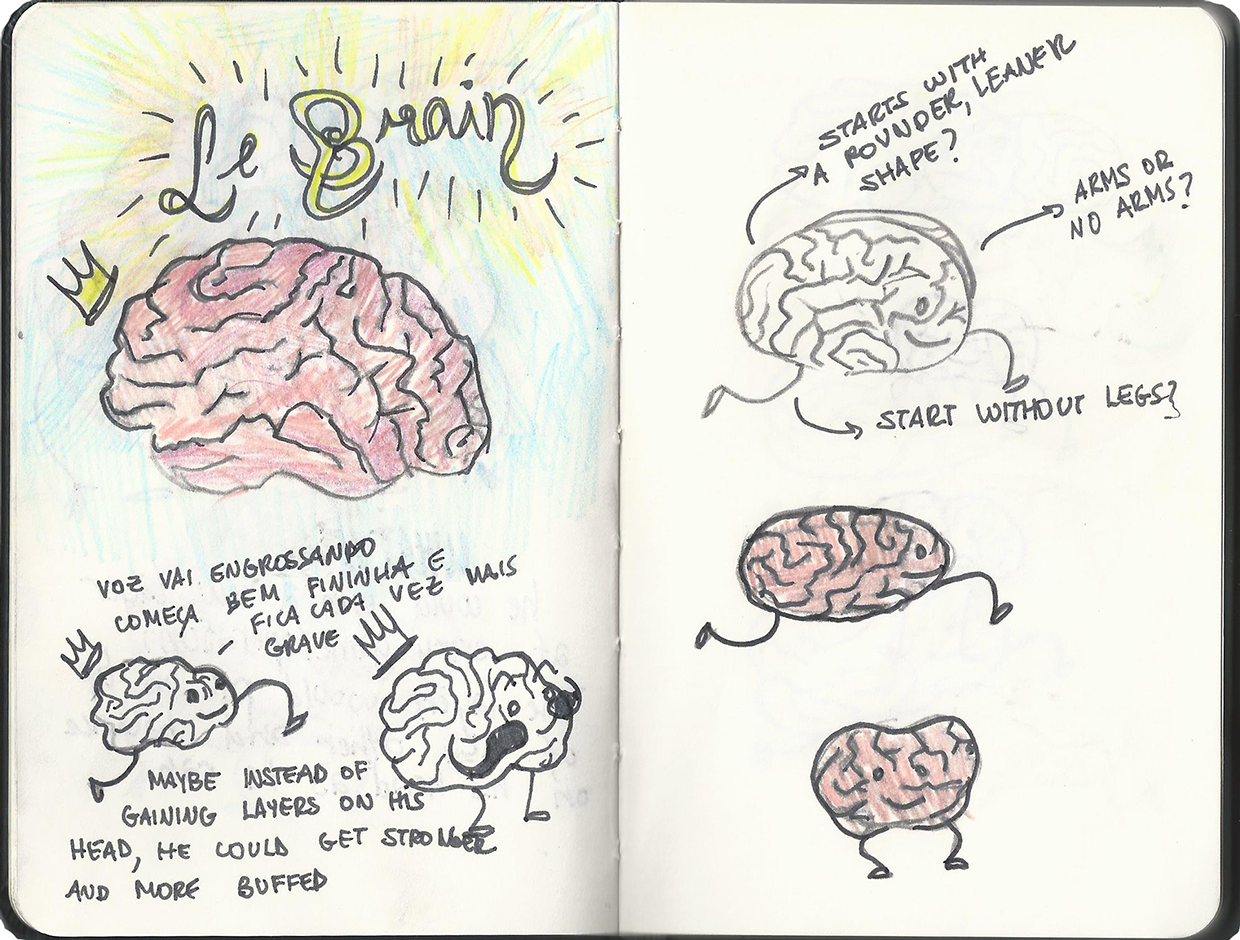 Le Brain
VOZ VAI ENGROSSANDO
COMEÇA BEM FININHA E
FICA CADA VEZ MAIS
GRAVE
MAYBE INSTEAD OF
GAINING LAYERS ON HIS
HEAD, HE COULD GET STRONGER
AND MORE BUFFED
STARTS WITH
A ROUNDER, LEANER
SHAPE?
ARMS OR
NO ARMS?
START WITHOUT LEGS?